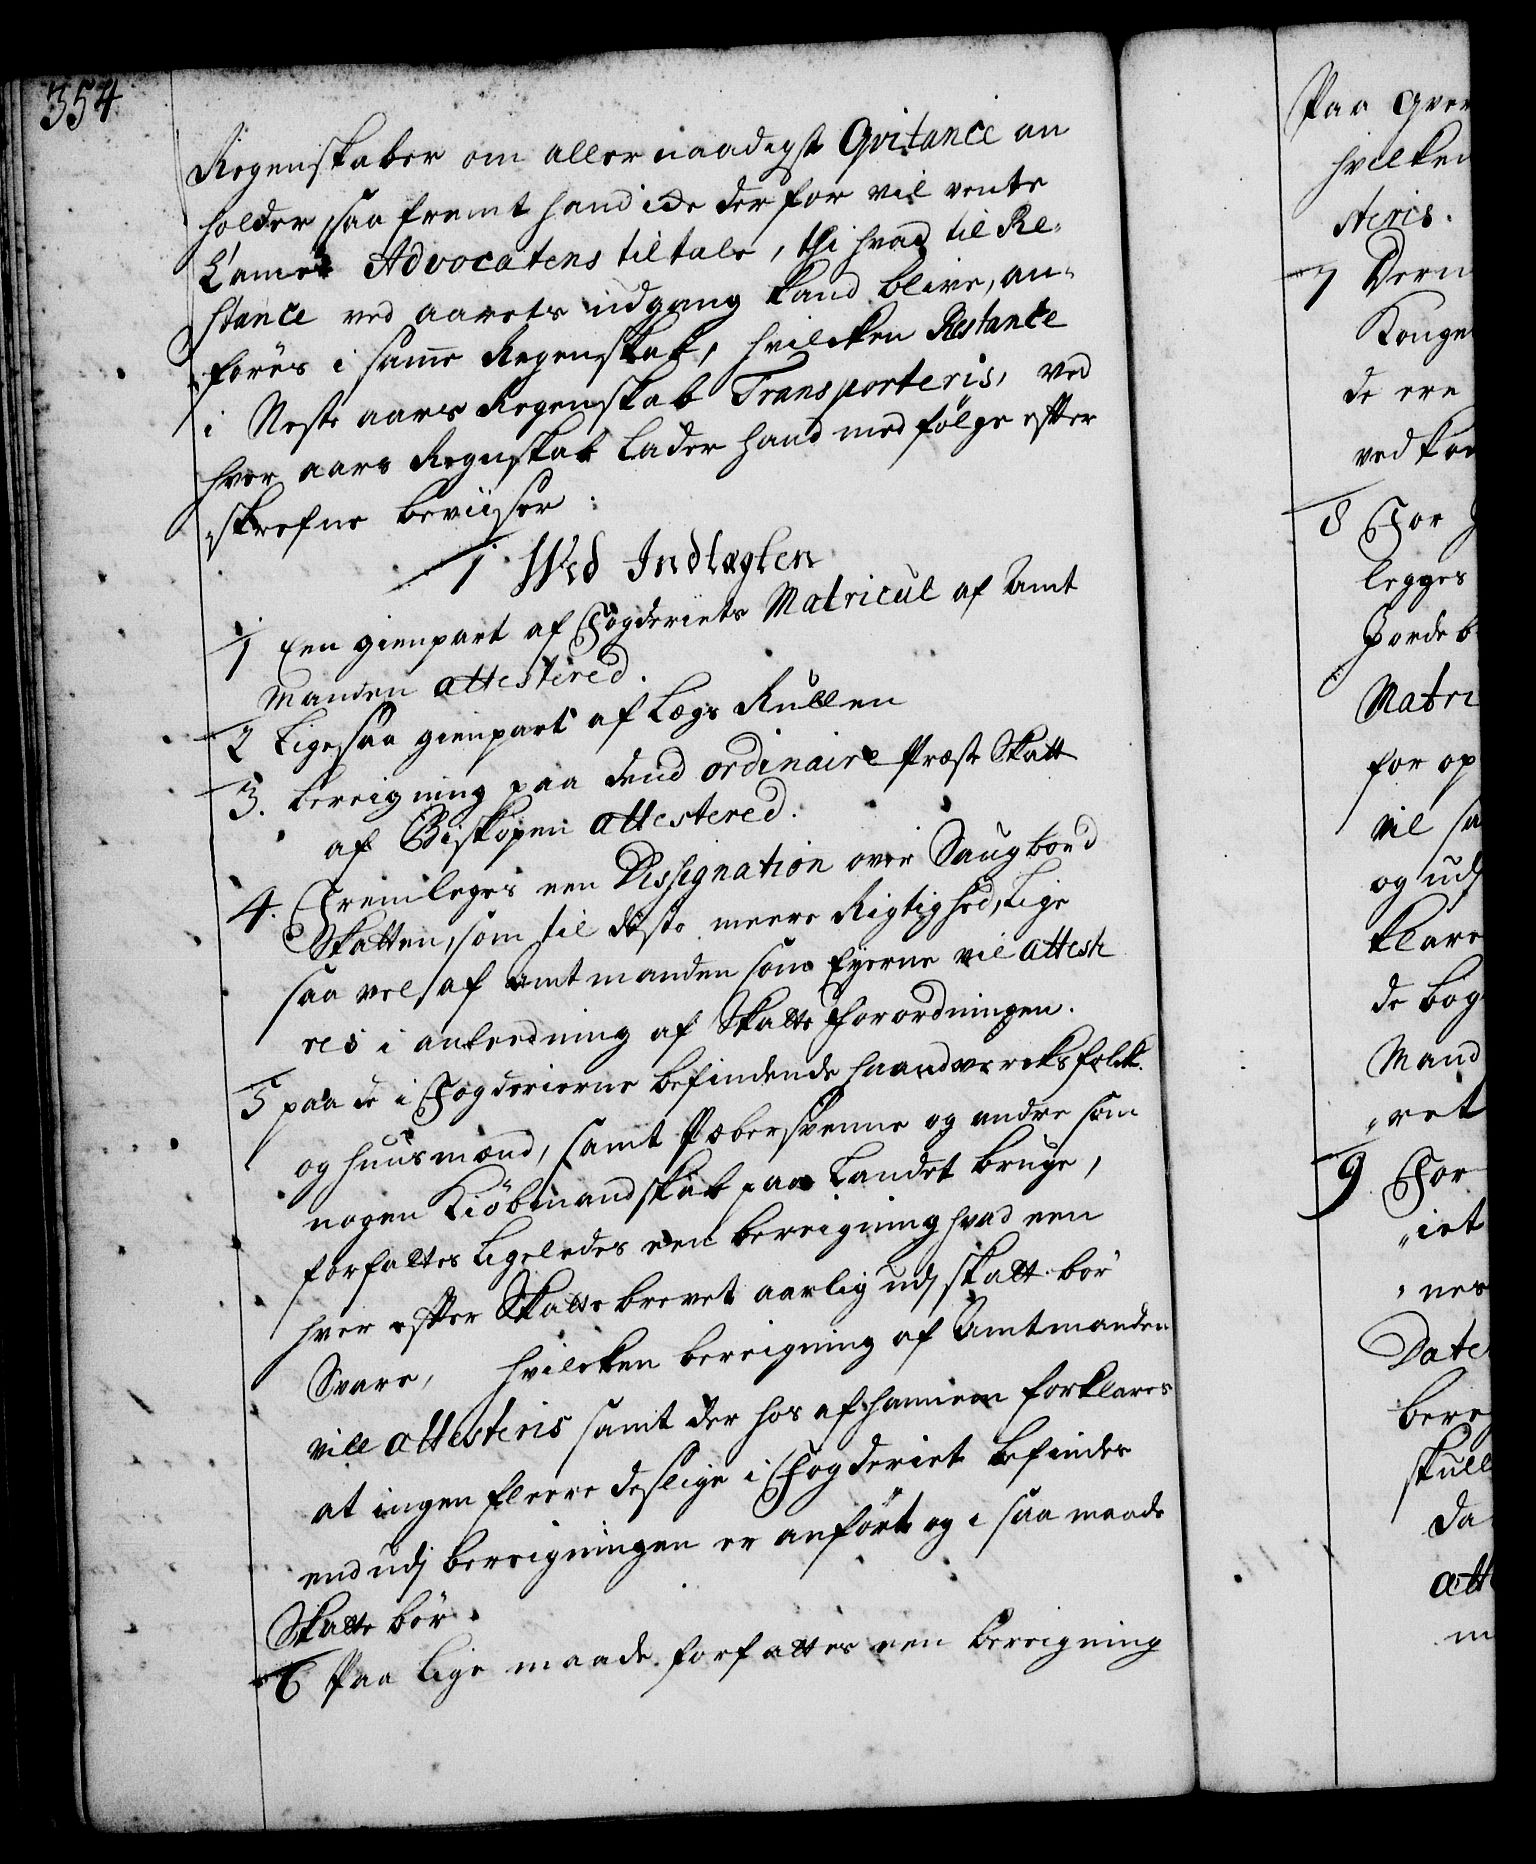 354
Regenskaber om aller naadigst Qvitance an
holder, saa fremt hand icke der for vil vente
Camer Advocatens tiltale, thi hvad til Re-
stance ved aarets udgang kand blive, an-
föres i same Regenskab, hvilcken Restance
i Neste aars Regenskab Transporteris, ved
hver aars Regnskab lader hand med fölge efter
skrefne beviiser:
1 Wed Indtægten
1 Een gienpart af Fogderiets Matricul af Amt
Manden attestered.
2 Ligesaa gienpart af Lægs Rullen
3. bereigning paa dend ordinaire Præste Skatt
af Biskopen attestered.
4. Fremleges een Dessignation over Saug bord
Skatten, som til dæsto meere Rigtighed, Lige
saa vel af amtmanden som Eyerne vil atteste
res i anledning af Skatte Forordningen.
5 paa de i Fogderierne befindende haandvercksfolck
og huusmænd, samt Pæbersvenne og andre som
nogen Kiöbmandskab paa Landet bruge,
forfattes Ligeledes een bereigning hvad een
hver efter Skatte brevet aarlig udj skatt bör
Svare, hvilcken bereigning af Amtmanden
vill attesteris samt der hos af hannem forklares
at ingen fleere deslige i Fogderiet befindes
end udj bereigningen er anfört og i saa maade
Skatte bör.
6 Paa lige maade forfattes een bereigning
Paa qver
hvilken
steris.
7 Dern
Konge
de ere
ved kom
8 For
legges
Jordeb
Matri
for op
vil sa
og udj
klare
de bog
Mand
ret
9 For
iet
nes
Date
bere
skull
da
att
m